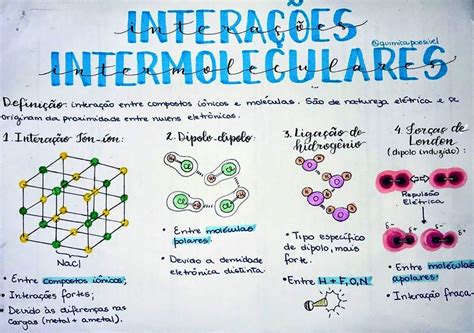 INTERAÇÕES
interações
@quimicapossivel
INTERMOLECULARES
intermoleculares
Definição: interação entre compostos iônicos e moléculas. São de natureza elétrica e se
originam da proximidade entre nuvens eletrônicas.
1. Interação Íon-íon:
NaCl
• Entre compostos iônicos;
• Interações fortes;
• Devido às diferenças nas
cargas (metal + ametal).
2. Dipolo-dipolo:
H Cl H Cl
H Cl H Cl
• Entre moléculas
polares.
• Devido a densidade
eletrônica distinta.
3. Ligação de
hidrogênio
• Tipo específico
de dipolo, mais
forte.
• Entre H + F,O,N
4. Forças de
London
(dipolo induzido):
Repulsão
Elétrica
δ- δ+ δ- δ+
• Entre moléculas
apolares.
• Interação fraca